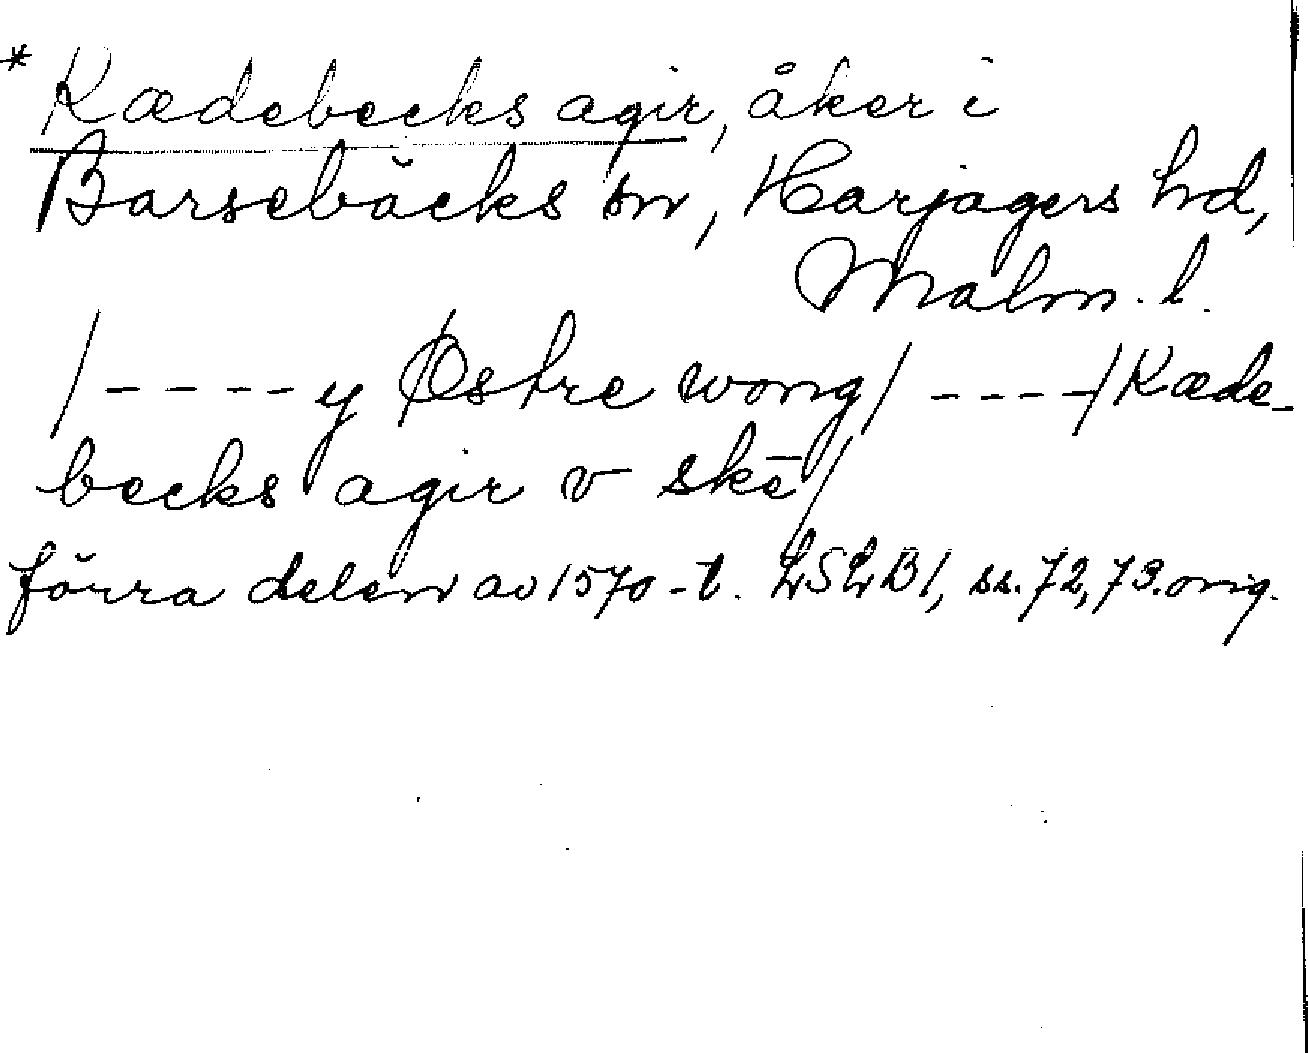 * Kædebecks agir, åker i
Barsebäcks sn, Harjagers hd,
Malm. l.
/----y Østre wong/ ----/Kæde-
becks agir v skē/
förra delen av 1570-t. LSLB1, ss. 72, 73. orig.